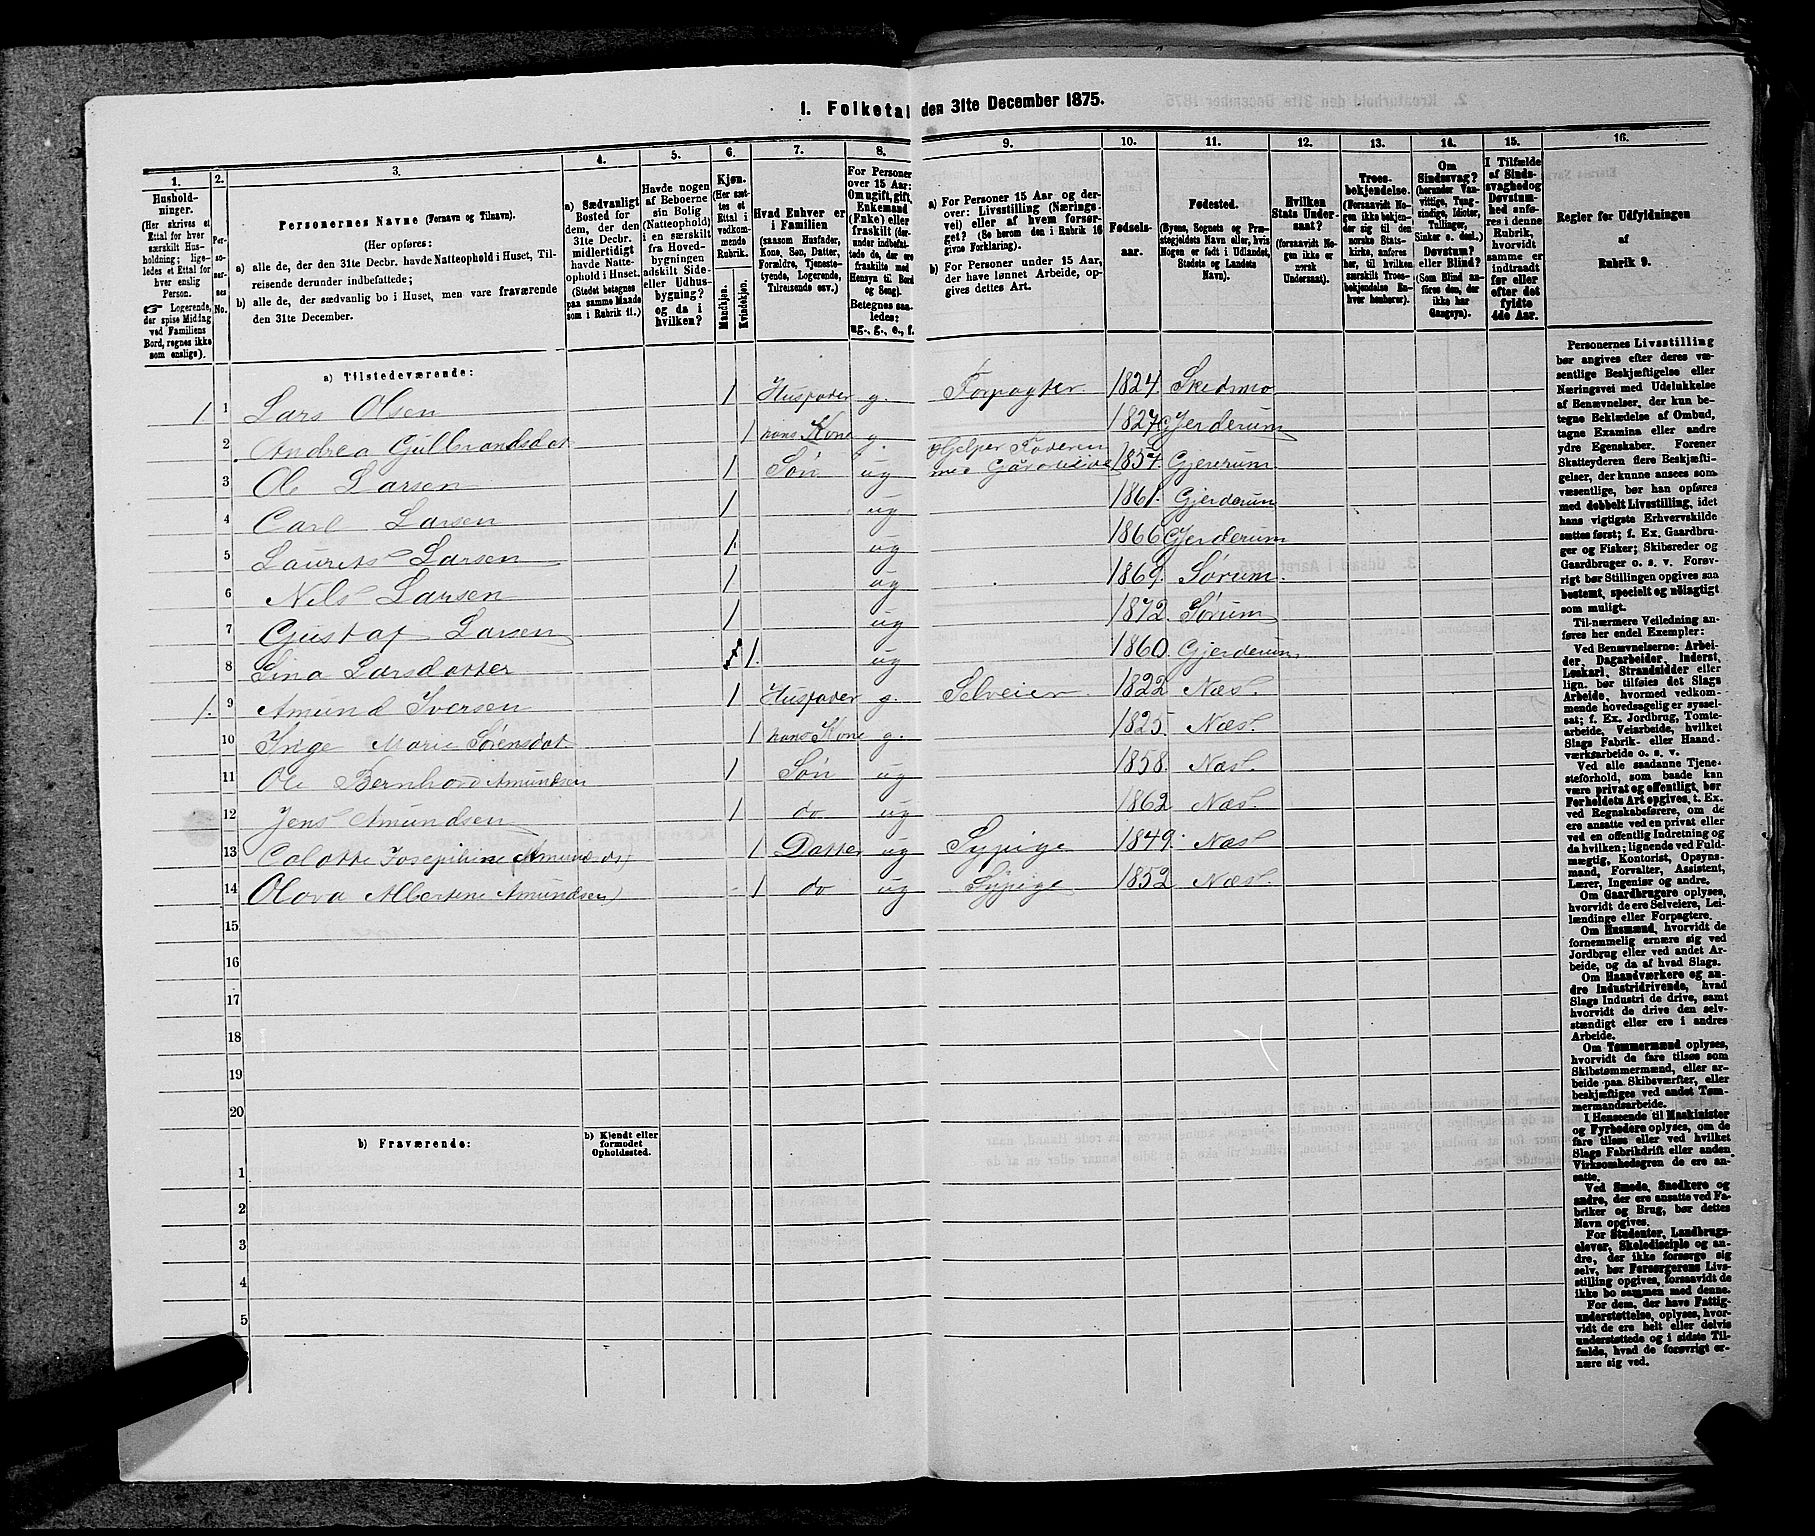 1. Folketal den 31te December 1875.
1. 2. 3. 4. 5. 6. 7. 8. 9. 10. 11. 12. 13. 14. 15. 16.
Hushold-
ninger.
(Her skrives et
Ettal for hver
særskilt Hus-
holdning; lige-
ledes et Ettal for
hver enslig
Person.
☞ Logerende,
der spise Middag
ved Familiens
Bord, regnes ikke
som enslige).
Per-
soner-
nes
No.
Personernes Navne (Fornavn og Tilnavn).
(Her opføres:
a) alle de, der den 31te Decbr. havde Natteophold i Huset, Til-
reisende derunder indbefattede;
b) alle de, der sædvanlig bo i Huset, men vare fraværende
den 31te December.
a) Sædvanligt
Bosted for
dem, der den
31te Decbr.
midlertidigt
havde Natte-
ophold i Huset.
(Stedet betegnes
paa samme Maade
som i Rubrik 11.)
Havde nogen
af Beboerne
sin Bolig
(Natteophold)
i en særskilt
fra Hoved-
bygningen
adskilt Side-
eller Udhus-
bygning?
og da i
hvilken?
Kjøn.
(Her sæt-
tes et
Ettal i
vedkom-
mende
Rubrik.
Mandkjøn.
Kvindekjøn.
Hvad Enhver er
i Familien
(saasom Husfader,
Kone, Søn, Datter,
Forældre, Tjeneste-
tyende, Logerende,
Tilreisende osv.)
For Personer
over 15 Aar:
Om ugift, gift,
Enkemand
(Enke) eller
fraskilt (der-
under indbefat-
tede de, der ere
fraskilte med
Hensyn til Bord
og Seng).
Betegnes saa-
ledes:
ug., g., e., f.
a) For Personer 15 Aar og der-
over: Livsstilling (Nærings-
vei) eller af hvem forsør-
get? (Se herom den i Rubrik 16
givne Forklaring).
b) For Personer under 15 Aar,
der have lønnet Arbeide, op-
gives dettes Art.
Fødsels-
aar.
Fødested.
(Byens, Sognets og Præ-
stegjeldets Navn eller, hvis
Nogen er født i Udlandet,
Stedets og Landets
Navn).
Hvilken
Stats Under-
saat?
(forsaavidt No-
gen ikke er
norsk
Undersaat).
Troes-
bekjendelse.
(Forsaavidt No-
gen ikke bekjen-
der sig til den
norske Stats-
kirke, anføres
her, til hvilken
særskilt Troes-
bekjendelse En-
hver henhører).
Om
Sindssvag?
(herunder Van-
vittige, Tung-
sindige, Idioter,
Tullinger,
Sinker o. desl.)
Døvstum?
eller Blind?
(Som Blind an-
føres den, der
ikke har
Gangsyn).
I Tilfælde
af Sinds-
svaghed og
Døvstum-
hed anfø-
res i denne
Rubrik,
hvorvidt
samme er
indtraadt
før eller
efter det
fyldte
4de Aar.
Regler for Udfyldningen
af
Rubrik 9.
a) Tilstedeværende:
1 1 Lars Olsen 1 Husfader g. Forpagter 1824. Skedsmo
2 Andrea Gulbrandsdat 1 hans Kone g. 1827 Gjerderum
3 Ole Larsen 1 Søn ug Hjelper Faderen
1857. Gjererum
4 Carl Larsen 1 ug 1861. Gjerderum
5 Laurits Larsen 1 ug 1866 Gjerderum
6 Nils Larsen 1 ug 1869. Sørum.
7 Gustaf Larsen 1 ug 1872. Sørum
8 Lina Larsdatter 1. ug 1860. Gjerderum
1. 9 Amund Iversen 1 Husfader g. Selveier 1822 Næs.
10 Inge Marie Sørensdat 1 hans Kone g. 1825. Næs.
11 Ole Bernhard Amundsen 1 Søn ug 1858. Næs.
12 Jens Amundsen 1 do ug 1862 Næs.
13 Colotte Josephine 1 Datter ug Sypige 1849. Næs
14 Olava Albertine Amundsen 1 do ug Sypige 1852 Næs.
15
16
17
18
19
20
b) Fraværende:
b) Kjendt eller
formodet
Opholdssted.
1
2
3
4
5
Personernes Livsstilling
bør angives efter deres væ-
sentlige Beskjæftigelse eller
Næringsvei med Udelukkelse
af Benævnelser, der kun be-
tegne Beklædelse af Ombud,
tagne Examina eller andre
ydre Egenskaber. Forener
Skatteyderen flere Beskjæfti-
gelser, der kunne ansees som
væsentlige, bør han opføres
med dobbelt Livsstilling, idet
hans vigtigste Erhvervskilde
sættes først; f. Ex. Gaardbru-
ger og Fisker; Skibsreder og
Gaardbruger o. s. v. Forøv-
rigt bør Stillingen opgives saa
bestemt, specielt og nøiagtigt
som muligt.
Til nærmere Veiledning an-
føres her endel Exempler:
Ved Benævnelserne: Arbei-
der, Dagarbeider, Inderst,
Løskarl, Strandsidder eller
lign. bør tilføies det Slags
Arbeide, hvormed vedkom-
mende hovedsagelig er syssel-
sat; f. Ex. Jordbrug, Tomte-
arbeide, Veiarbeide, hvilket
Slags Fabrik- eller Haand-
værksarbeide o. s. v.
Ved alle saadanne Tjene-
steforhold, som baade kan
være privat og offentligt, bør
Forholdets Art opgives, t. Ex.
ved Regnskabsførere, om de
ere ansatte ved en privat eller
ved en offentlig Indretning og
da hvilken; lignende ved Fuld-
mægtig, Kontorist, Opsyns-
mand, Forvalter, Assistent,
Lærer, Ingeniør og andre.
Om Gaardbrugere oplyses,
hvorvidt de ere Selveiere, Lei-
lændinge eller Forpagtere.
Om Husmænd, hvorvidt de
fornemmelig ernære sig ved
Jordbrug eller ved andet Ar-
beide, og da af hvad Slags.
Om Haandværkere og an-
dre Industridrivende, hvad
Slags Industri de drive, samt
hvorvidt de drive den selv-
stændigt eller ere i andres
Arbeide.
Om Tømmermænd oplyses,
hvorvidt de fare tilsøs som
Skibstømmermænd, eller ar-
beide paa Skibsværfter, eller
beskjæftiges ved andet Tøm-
mermandsarbeide.
I Henseende til Maskinister
og Fyrbødere oplyses, om de
fare tilsøs eller ved hvilket
Slags Fabrikdrift eller anden
Virksomhedsgren de ere an-
satte.
Ved Smede, Snedkere og
andre, der ere ansatte ved Fa-
briker og Brug, bør dettes
Navn opgives.
For Studenter, Landbrugs-
elever, Skoledisciple og an-
dre, der ikke forsørge sig
selv, bør Forsørgerens Livs-
stilling opgives, forsaavidt de
ikke bo sammen med denne.
For dem, der have Fattig-
understøttelse, oplyses, hvor-
vidt de ere helt eller delvis
understøttede og i sidste Til-
fælde, hvad de forøvrigt er-
nære sig ved.